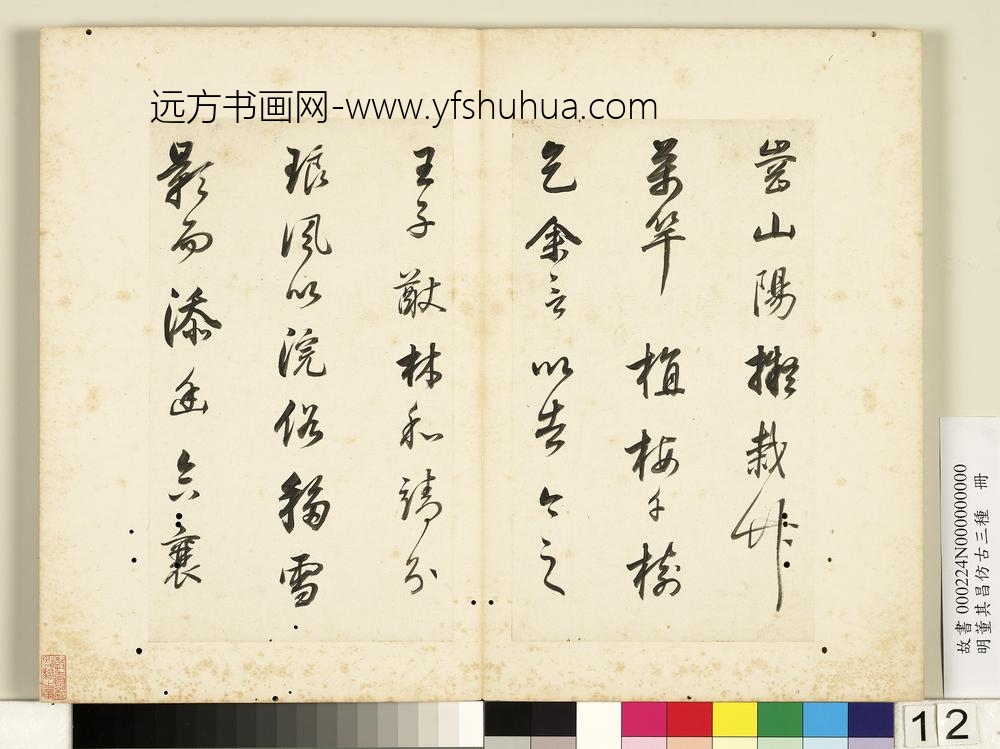 远方书画网-www.yfshuhua.com
當山陽擬栽竹
萬竿植梅千樹
乞余言以告今之
王子猷林和靖分
琅風以浣俗移雪
影而添幽 六襄
故書 000224N000000000
明董其昌仿古三種 冊
12